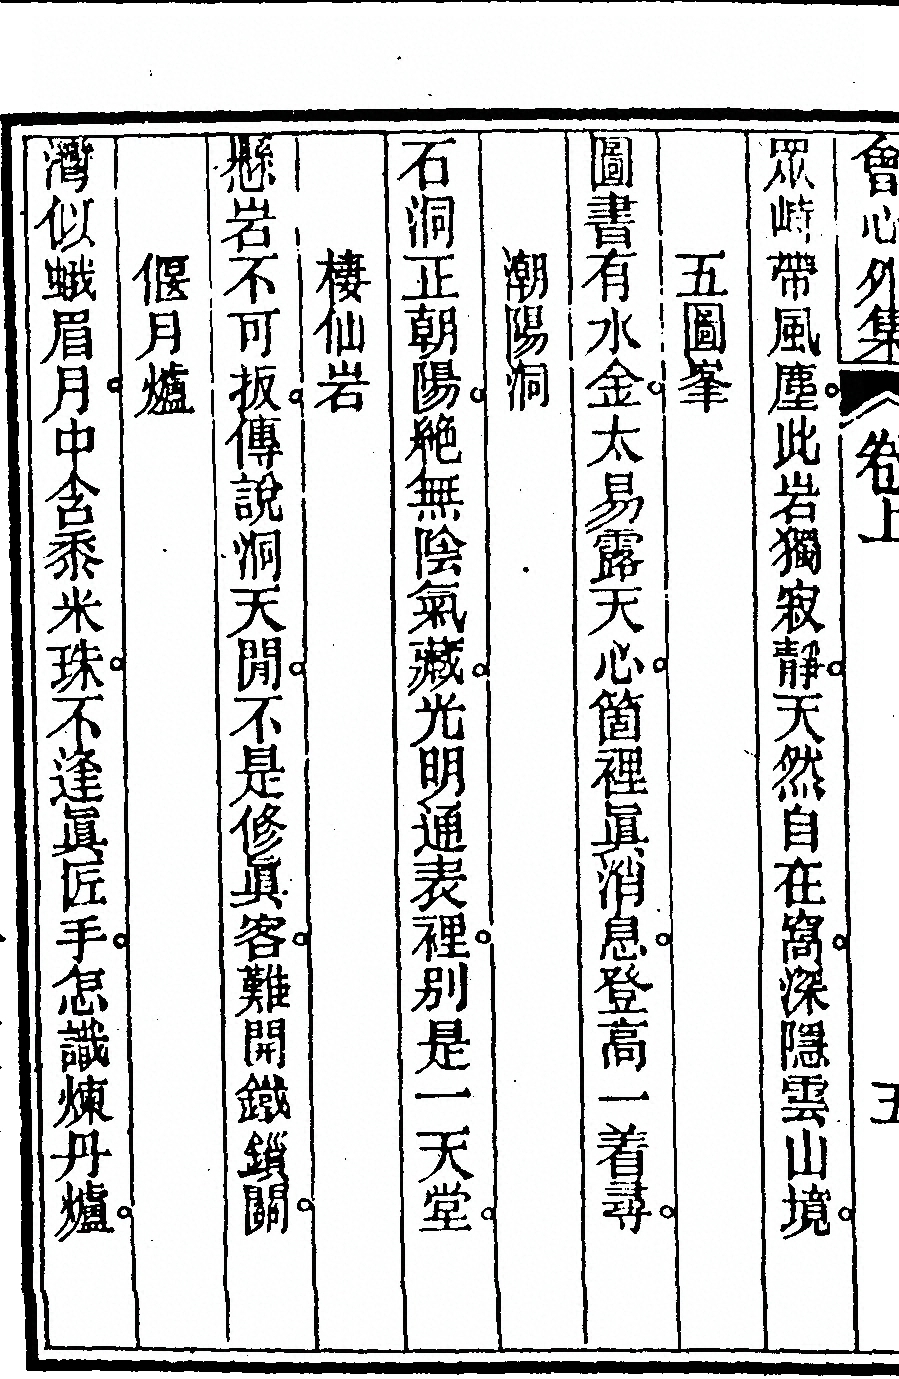 會心外集 卷上 五
眾峙帶風塵此岩獨寂靜天然自在窩深隱雲山境
五圖峯
圖書有水金太易露天心箇裡眞消息登高一着尋
潮陽洞
石洞正朝陽絶無陰氣藏光明通表裡别是一天堂
棲仙岩
懸岩不可扳傳說洞天閒不是修眞客難開鐵鎖關
偃月爐
灣似蛾眉月中含黍米珠不逢眞匠手怎識煉丹爐